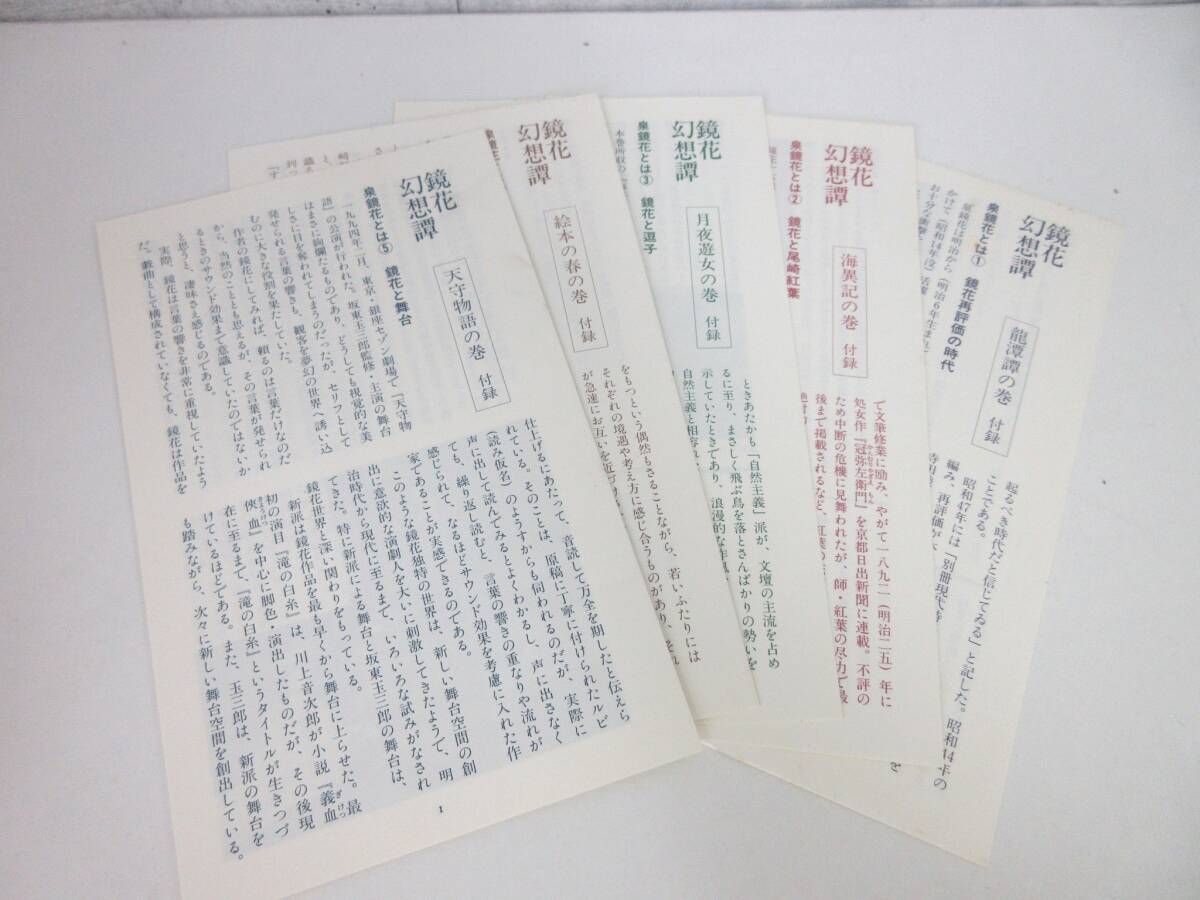 鏡花
幻想譚
天守物語の巻 付録
泉鏡花とは⑤ 鏡花と舞台
一九九四年二月、東京・銀座セゾン劇場で『天守物
語』の公演が行われた。坂東玉三郎監修・主演の舞台
はまさに絢爛たるものであり、どうしても視覚的な美
しさに目を奪われてしまうのだったが、セリフとして
発せられる言葉の響きも、観客を夢幻の世界へ誘い込
むのに大きな役割を果たしていた。
作者の鏡花にしてみれば、頼るのは言葉だけなのだ
から、当然のこととも思えるが、その言葉が発せられ
るときのサウンド効果まで意識していたのではないか
と思うと、凄味さえ感じるのである。
実際、鏡花は言葉の響きを非常に重視していたよう
だ。戯曲として構成されていなくても、鏡花は作品を
仕上げるにあたって、音読して万全を期したと伝えら
れている。そのことは、原稿に丁寧に付けられたルビ
（読み仮名）のようすからも伺われるのだが、実際に
声に出して読んでみるとよくわかるし、声に出さなく
ても、繰り返し読むと、言葉の響きの重なりや流れが
感じられて、なるほどサウンド効果を考慮に入れた作
家であることが実感できるのである。
このような鏡花独特の世界は、新しい舞台空間の創
出に意欲的な演劇人を大いに刺激してきたようで、明
治時代から現代に至るまで、いろいろな試みがなされ
てきた。特に新派による舞台と坂東玉三郎の舞台は、
鏡花世界と深い関わりをもっている。
新派は鏡花作品を最も早くから舞台に上らせた。最
初の演目『滝の白糸』は、川上音次郎が小説『義血
侠血』を中心に脚色・演出したものだが、その後現
在に至るまで、『滝の白糸』というタイトルが生きつづ
けているほどである。また、玉三郎は、新派の舞台を
も踏みながら、次々に新しい舞台空間を創出している。
1
鏡花
幻想譚
絵本の春の巻 付録
をもつという偶然もさることながら、若いふたりには
それぞれの境遇や考え方に感じ合うものがあり、それ
が急速にお互いを近づけ
鏡花
幻想譚
月夜遊女の巻 付録
泉鏡花とは③ 鏡花と逗子
本巻所収の
ときあたかも「自然主義」派が、文壇の主流を占め
るに至り、まさしく飛ぶ鳥を落とさんばかりの勢いを
示していたときであり、浪漫的な作風
自然主義と相容れ
鏡花
幻想譚
海異記の巻 付録
泉鏡花とは② 鏡花と尾崎紅葉
て文筆修業に励み、やがて一八九二（明治二五）年に
処女作『冠弥左衛門』を京都日出新聞に連載。不評の
ため中断の危機に見舞われたが、師・紅葉の尽力で最
後まで掲載されるなど、紅葉の
鏡花
幻想譚
龍潭譚の巻 付録
泉鏡花とは① 鏡花再評価の時代
泉鏡花は明治から
かけて（昭和14年没）活
起るべき時代だと信じてゐる」と記した。昭和44年の
ことである。
昭和47年には「別冊現代詩
編み、再評価が